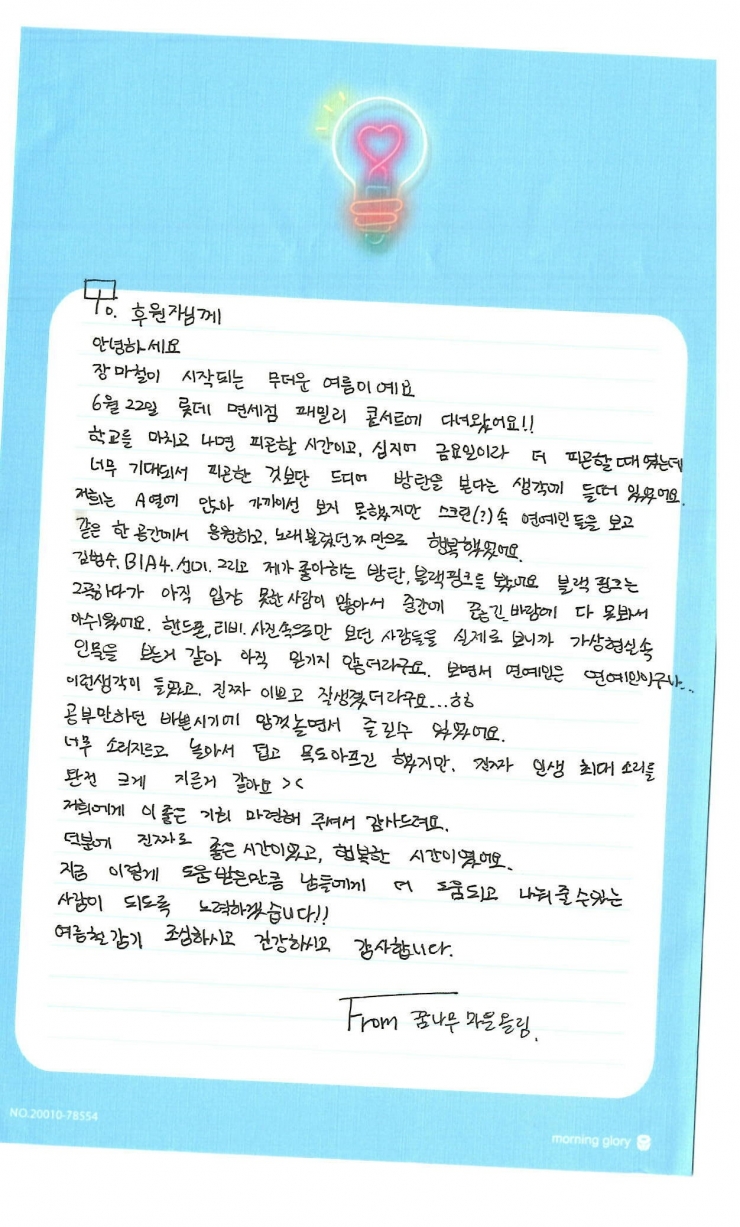 To. 후원자님께
안녕하세요
장마철이 시작되는 무더운 여름이예요
6월 22일 롯데 면세점 패밀리 콘서트에 다녀왔어요!!
학교를 마치고 나면 피곤할 시간이고, 심지어 금요일이라 더 피곤할때였는데
너무 기대되서 피곤한 것보단 드디어 방탄을 본다는 생각에 들떠 있었어요.
저희는 A열에 앉아 가까이선 보지 못했지만 스크린(?)속 연예인들을 보고
같은 한 공간에서 응원하고, 노래불렀던거 만으로 행복했었어요.
김범수, B1A4, 선미, 그리고 제가 좋아하는 방탄, 블랙핑크를 봤어요 블랙핑크는
2곡하다가 아직 입장 못한사람이 많아서 중간에 끊긴바람에 다 못봐서
아쉬웠어요. 핸드폰, 티비, 사진속으로만 보던 사람들을 실제로 보니까 가상현실속
인물을 보는거 같아 아직 믿기지 않더라구요. 보면서 연예인은 연예인이구나...
이런생각이 들었고, 진짜 이쁘고 잘생겼더라구요...ㅎㅎ
공부만하던 바쁜시기에 맘껏놀면서 즐길수 있었어요.
너무 소리지르고 놀아서 덥고 목도아프긴 했지만, 진짜 인생 최대 소리를
완전 크게 지른거 같아요 ><
저희에게 이 좋은 기회 마련해 주셔서 감사드려요.
덕분에 진짜로 좋은시간이었고, 행복한 시간이였어요.
지금 이렇게 도움받은만큼 남들에게 더 도움되고 나눠줄수있는
사람이 되도록 노력하겠습니다!!
여름철감기 조심하시고 건강하시고 감사합니다.
From 꿈나무 마을 올림.
NO.20010-78554
morning glory